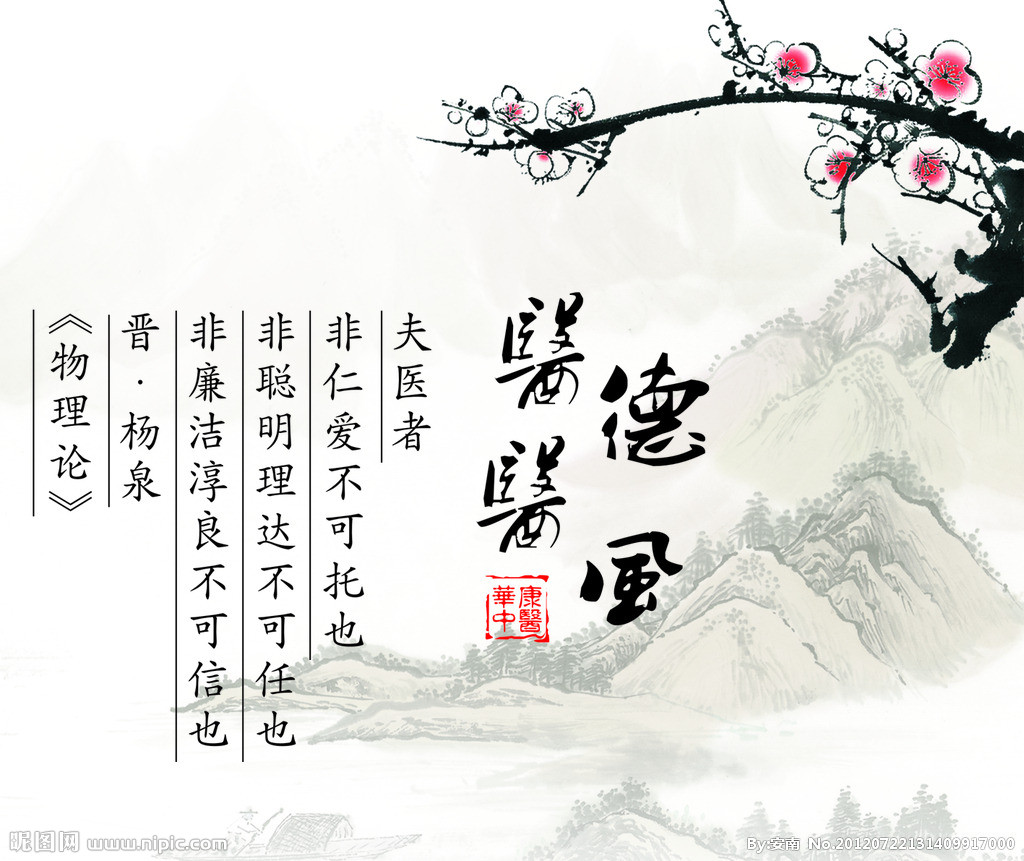 德風
醫醫
康醫
華中
夫医者
非仁爱不可托也
非聪明理达不可任也
非廉洁淳良不可信也
晋·杨泉
《物理论》
昵图网 www.nipic.com
By:安南 No.20120722131409917000